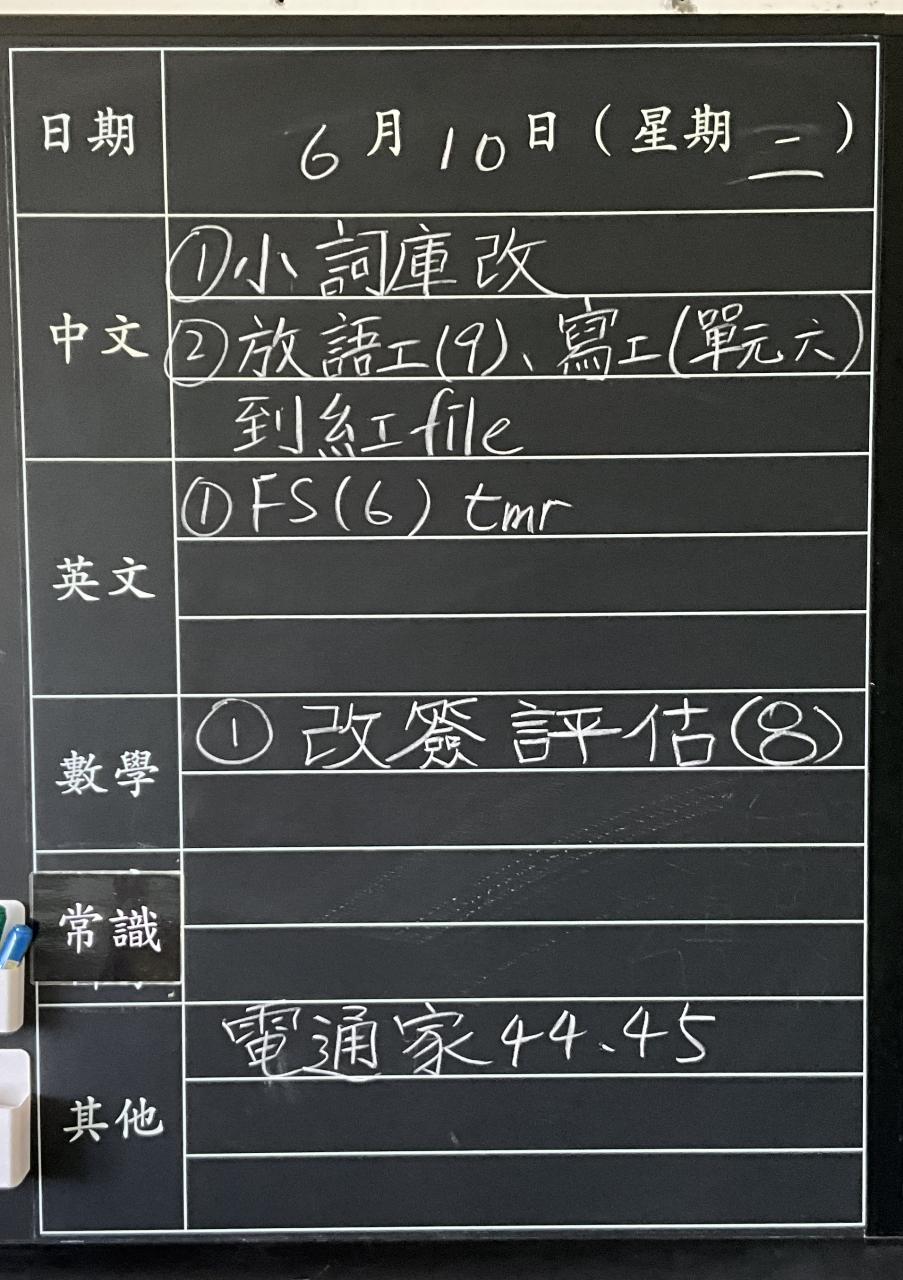 日期 6月10日(星期二)
中文 ①小詞庫改
②放語工(9)、寫工(單元六)
到紅file
英文 ①FS(6) tmr
數學 ① 改簽評估(8)
常識
其他 電通家44、45